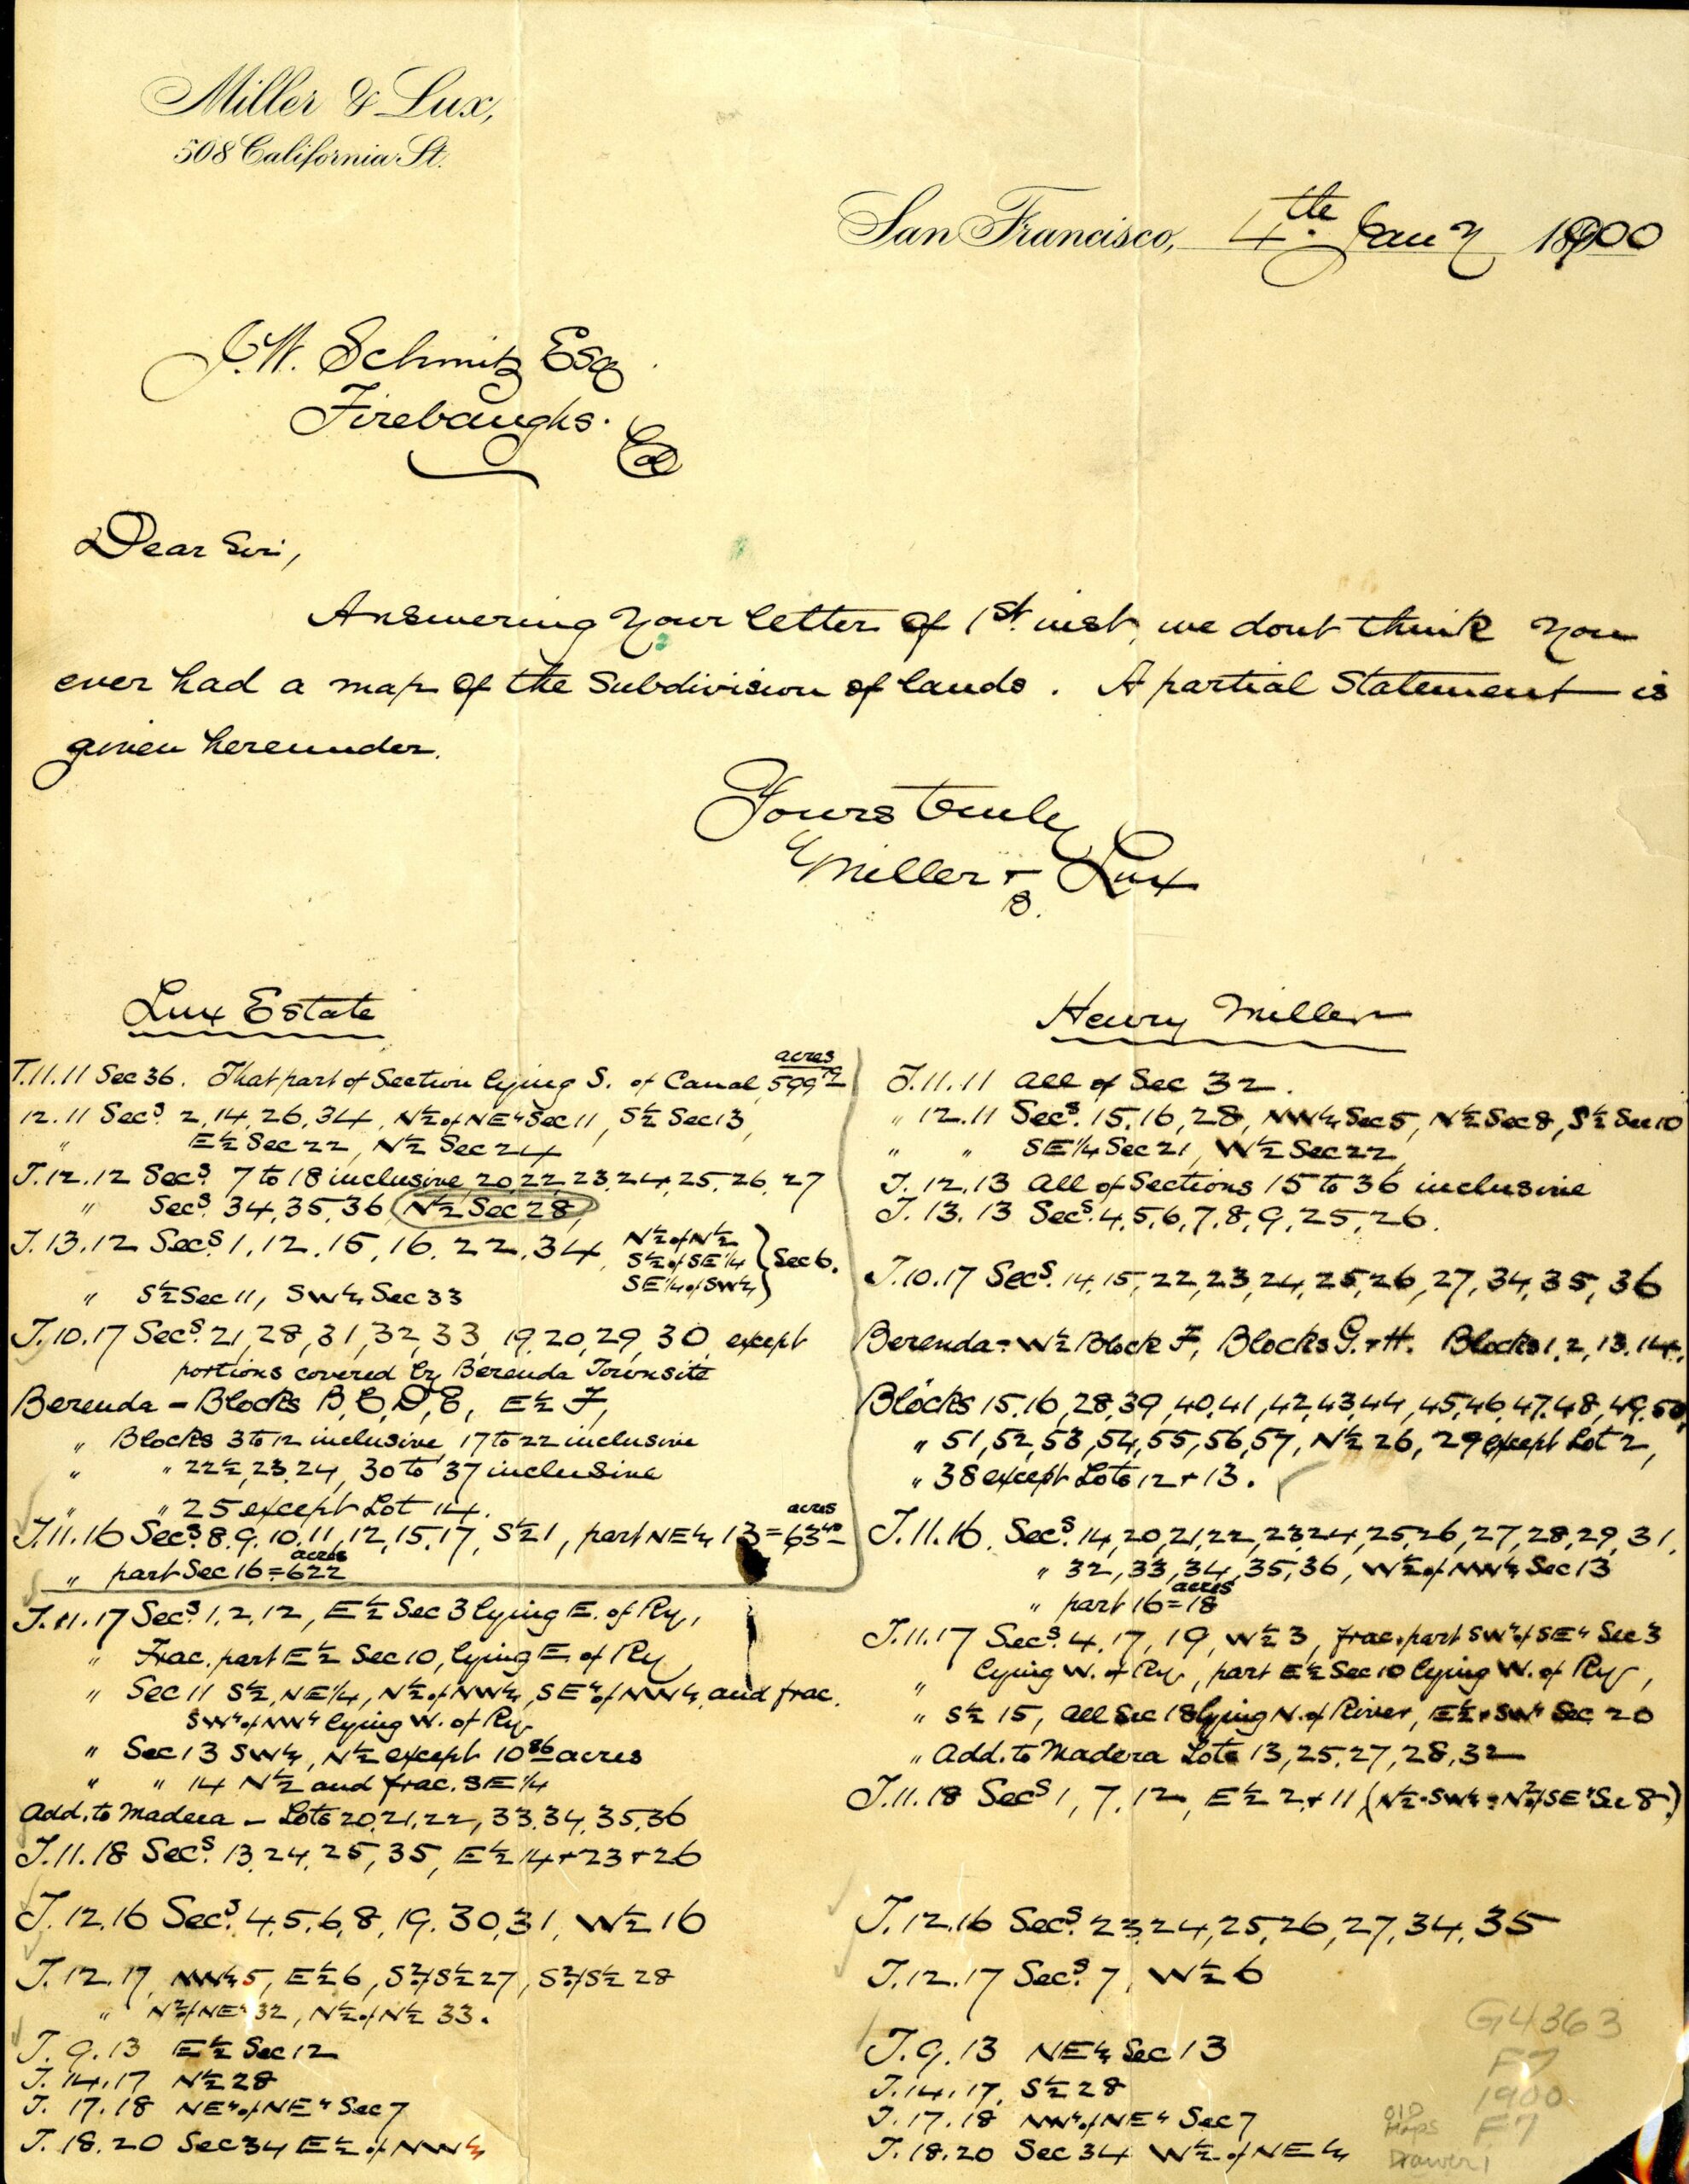 Miller & Lux,
508 California St.
San Francisco, 4th Jany 1900
J. W. Schmitz Esq
Firebaughs.
Cal
Dear Sir,
Answering your letter of 1st inst, we dont think you
ever had a map of the Subdivision of lands. A partial Statement is
given hereunder.
Yours truly
Miller + Lux
B.
Lux Estate
T.11.11 Sec 36. That part of Section lying S. of Canal, 599 72 acres
12.11 Secs. 2, 14, 26, 34, N½ of NE¼ Sec 11, S½ Sec 13,
" E½ Sec 22, N½ Sec 24
T.12.12 Secs. 7 to 18 inclusive 20, 22, 23, 24, 25, 26, 27
" Secs. 34, 35, 36, N½ Sec 28,
T.13.12 Secs. 1, 12, 15, 16, 22, 34, N½ of N½ S½ of SE¼ SE¼ of SW¼ } Sec 6.
" S½ Sec 11, SW¼ Sec 33
T.10.17 Secs. 21, 28, 31, 32, 33, 19, 20, 29, 30, except
portions covered by Berenda Townsite
Berenda - Blocks B, C, D, E, E½ F,
" Blocks 3 to 12 inclusive, 17 to 22 inclusive
" " 22½, 23, 24, 30 to 37 inclusive
" " 25 except Lot 14.
T.11.16 Secs. 8, 9, 10, 11, 12, 15, 17, S½ 1, part NE¼ 13 = 63 40 acres
" part Sec 16 = 622 acres
T.11.17 Secs. 1, 2, 12, E½ Sec 3 lying E. of Ry,
" Frac. part E½ Sec 10, lying E. of Ry
" Sec 11 S½, NE¼, N½ of NW¼, SE¼ of NW¼, and frac.
SW¼ of NW¼ lying W. of Ry.
" Sec 13 SW¼, N½ except 10 86 acres
" " 14 N½ and frac. SE¼
Add. to Madera - Lots 20, 21, 22, 33, 34, 35, 36
T.11.18 Secs. 13, 24, 25, 35, E½ 14 + 23 + 26
T.12.16 Secs. 4, 5, 6, 8, 19, 30, 31, W½ 16
T.12.17, NW¼ 5, E½ 6, S½ of S½ 27, S½ of S½ 28
" N½ of NE¼ 32, N½ of N½ 33.
T. 9.13 E½ Sec 12
T. 14.17 N½ 28
T. 17.18 NE¼ of NE¼ Sec 7
T. 18.20 Sec 34 E½ of NW¼
Henry Miller
T.11.11 all of Sec 32.
" 12.11 Secs. 15, 16, 28, NW¼ Sec 5, N½ Sec 8, S½ Sec 10
" " SE¼ Sec 21, W½ Sec 22
T. 12.13 All of Sections 15 to 36 inclusive
T. 13.13 Secs. 4, 5, 6, 7, 8, 9, 25, 26.
T.10.17 Secs. 14, 15, 22, 23, 24, 25, 26, 27, 34, 35, 36
Berenda - W½ Block F, Blocks G. + H. Blocks 1, 2, 13, 14,
Blocks 15, 16, 28, 39, 40, 41, 42, 43, 44, 45, 46, 47, 48, 49, 50,
" 51, 52, 53, 54, 55, 56, 57, N½ 26, 29 except Lot 2,
" 38 except Lots 12 + 13.
T.11.16. Secs. 14, 20, 21, 22, 23, 24, 25, 26, 27, 28, 29, 31,
" 32, 33, 34, 35, 36, W½ of NW¼ Sec 13
" part 16 = 18 acres
T.11.17 Secs. 4, 17, 19, W½ 3, frac. part SW¼ of SE¼ Sec 3
" lying W. of Ry, part E½ Sec 10 lying W. of Ry,
" S½ 15, all Sec 18 lying N. of River, E½ + SW¼ Sec. 20
" Add. to Madera Lots 13, 25, 27, 28, 32
T.11.18 Secs 1, 7, 12, E½ 2 + 11 (N½ - SW¼ - N½ of SE¼ Sec 8)
T.12.16 Secs. 23, 24, 25, 26, 27, 34, 35
T.12.17 Secs. 7, W½ 6
T.9.13 NE¼ Sec 13
T.14.17, S½ 28
T.17.18 NW¼ of NE¼ Sec 7
T.18.20 Sec 34 W½ of NE¼
G4363
F7
1900
F7
Old
Maps
Drawer 1